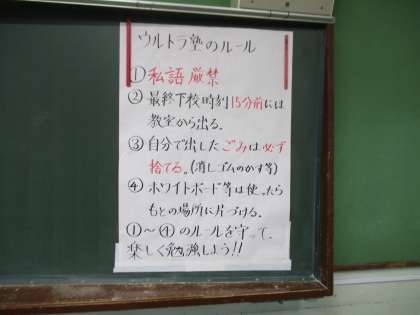 ウルトラ塾のルール
① 私語 厳禁
② 最終下校時刻15分前には
教室から出る。
③ 自分で出したごみは必ず
捨てる。(消しゴムのかす等)
④ ホワイトボード等は使ったら
もとの場所に片づける。
①～④のルールを守って、
楽しく勉強しよう!!